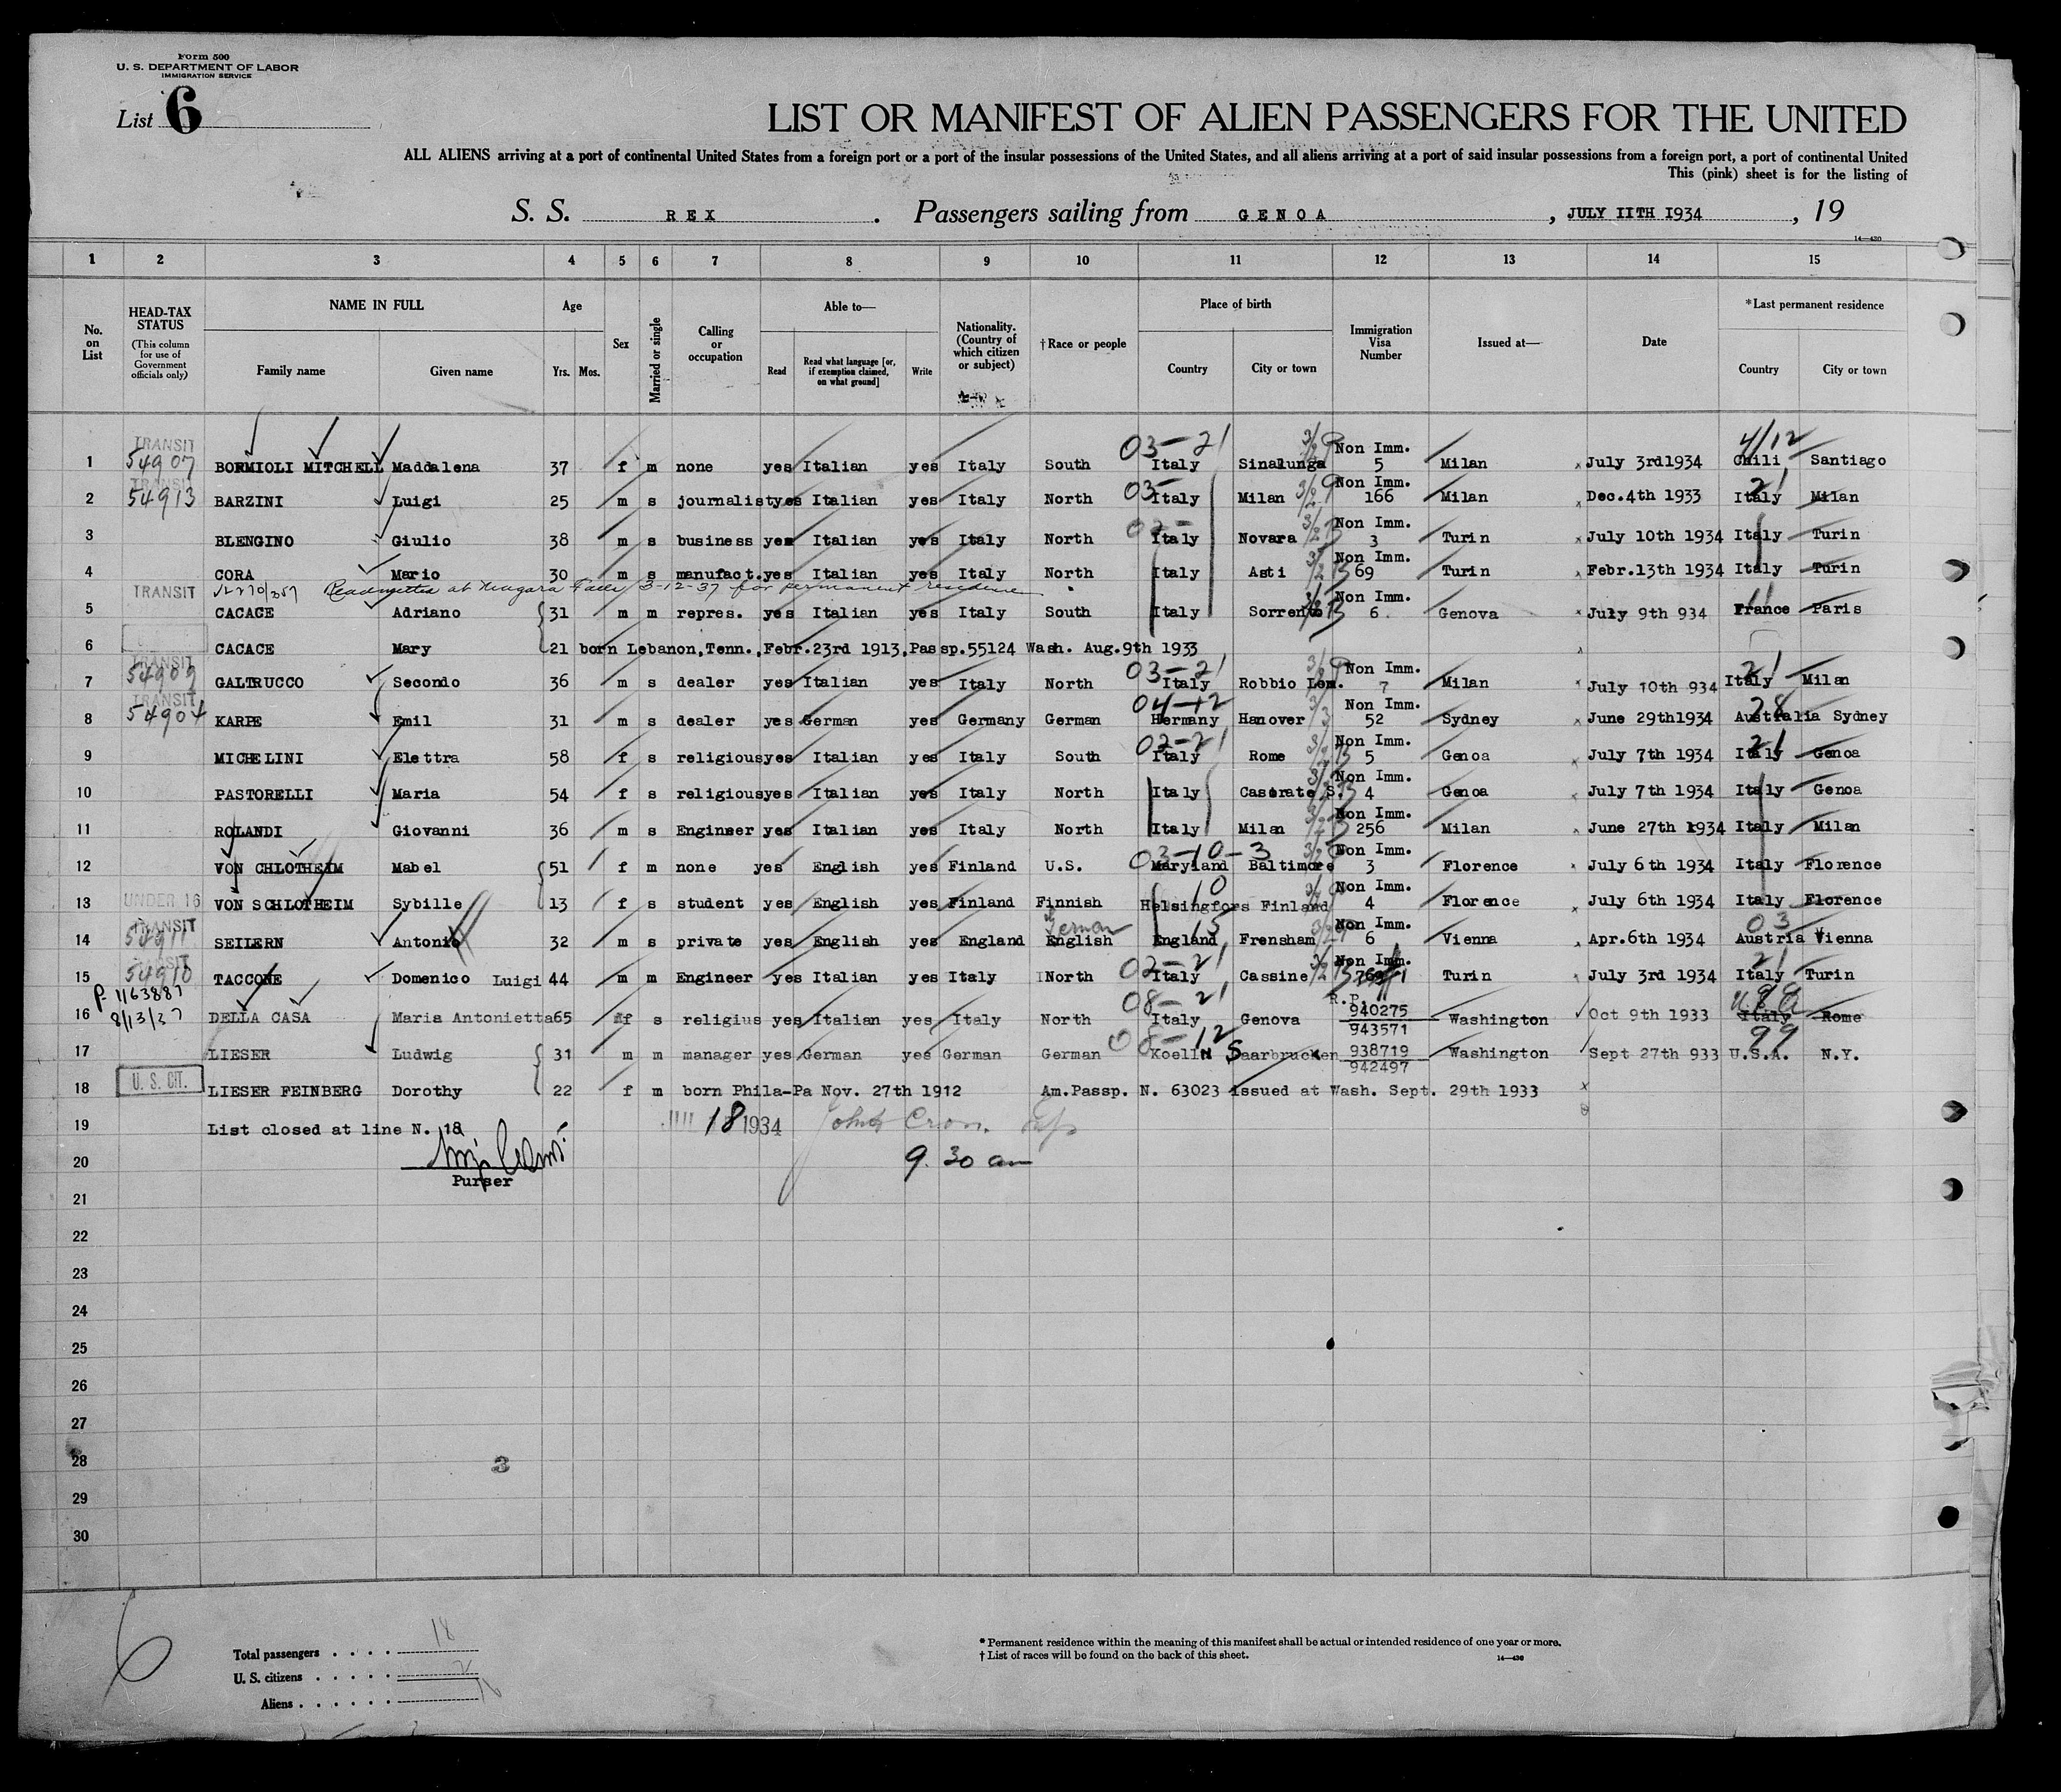 Form 500
U. S. DEPARTMENT OF LABOR
IMMIGRATION SERVICE
List 6
LIST OR MANIFEST OF ALIEN PASSENGERS FOR THE UNITED
ALL ALIENS arriving at a port of continental United States from a foreign port or a port of the insular possessions of the United States, and all aliens arriving at a port of said insular possessions from a foreign port, a port of continental United
This (pink) sheet is for the listing of
S. S. REX. Passengers sailing from GENOA, JULY IITH I934, 19
14—430
1 2 3 4 5 6 7 8 9 10 11 12 13 14 15
No. on List
HEAD-TAX STATUS (This column for use of Government officials only)
NAME IN FULL
Family name Given name
Age
Yrs. Mos.
Sex
Married or single
Calling or occupation
Able to—
Read Read what language [or, if exemption claimed, on what ground] Write
Nationality. (Country of which citizen or subject)
†Race or people
Place of birth
Country City or town
Immigration Visa Number
Issued at—
Date
*Last permanent residence
Country City or town
TRANSIT 03-21 Non Imm. 4/12
1 54907 BORMIOLI MITCHELL Maddalena 37 f m none yes Italian yes Italy South Italy Sinalunga 5 Milan July 3rd1934 Chili Santiago
TRANSIT 03- Non Imm. 21
2 54913 BARZINI Luigi 25 m s journalist yes Italian yes Italy North Italy Milan 166 Milan Dec.4th 1933 Italy Milan
Non Imm.
3 BLENGINO Giulio 38 m s business yes Italian yes Italy North Italy Novara 3 Turin July 10th 1934 Italy Turin
Non Imm.
4 CORA Mario 30 m s manufact. yes Italian yes Italy North Italy Asti 69 Turin Febr.13th 1934 Italy Turin
TRANSIT Readmitted at Niagara Falls 3-12-37 for permanent residence Non Imm.
5 CACACE Adriano 31 m m repres. yes Italian yes Italy South Italy Sorrento 6. Genova July 9th 934 France Paris
6 CACACE Mary 21 born Lebanon,Tenn.,Febr.23rd 1913,Passp.55124 Wash. Aug.9th 1933
TRANSIT 03-21 Non Imm. 21
7 54909 GALTRUCCO Secondo 36 m s dealer yes Italian yes Italy North Italy Robbio Lom. 7 Milan July 10th 934 Italy Milan
TRANSIT 04-12 Non Imm. 28
8 54904 KARPE Emil 31 m s dealer yes German yes Germany German Hermany Hanover 52 Sydney June 29th1934 Australia Sydney
02-21 Non Imm. 21
9 MICHELINI Elettra 58 f s religious yes Italian yes Italy South Italy Rome 5 Genoa July 7th 1934 Italy Genoa
Non Imm.
10 PASTORELLI Maria 54 f s religious yes Italian yes Italy North Italy Casorate S. 4 Genoa July 7th 1934 Italy Genoa
Non Imm.
11 ROLANDI Giovanni 36 m s Engineer yes Italian yes Italy North Italy Milan 256 Milan June 27th 1934 Italy Milan
03-10-3 Non Imm.
12 VON CHLOTHEIM Mabel 51 f m none yes English yes Finland U.S. Maryland Baltimore 3 Florence July 6th 1934 Italy Florence
10 Non Imm.
13 UNDER 16 VON SCHLOTHEIM Sybille 13 f s student yes English yes Finland Finnish Helsingfors Finland 4 Florence July 6th 1934 Italy Florence
TRANSIT German 15 Non Imm. 03
14 54911 SEILERN Antonio 32 m s private yes English yes England English England Frensham 6 Vienna Apr.6th 1934 Austria Vienna
02-21 Non Imm. 21
15 54910 TACCONE Domenico Luigi 44 m m Engineer yes Italian yes Italy North Italy Cassine Turin July 3rd 1934 Italy Turin
P. 1163887 08-21 R.P. 99
16 8/13/37 DELLA CASA Maria Antonietta 65 f s religius yes Italian yes Italy North Italy Genova 940275 943571 Washington Oct 9th 1933 Italy Rome
08-12 99
17 LIESER Ludwig 31 m m manager yes German yes German German Koelln Saarbrucken 938719 942497 Washington Sept 27th 933 U.S.A. N.Y.
U. S. CIT.
18 LIESER FEINBERG Dorothy 22 f m born Phila-Pa Nov. 27th 1912 Am.Passp. N. 63023 issued at Wash. Sept. 29th 1933
19 List closed at line N. 18 18 1934
20 9.30 am
Purser
21
22
23
24
25
26
27
28 3
29
30
6
Total passengers . . . . 18
U. S. citizens . . . . . 2
Aliens . . . . . . 16
* Permanent residence within the meaning of this manifest shall be actual or intended residence of one year or more.
† List of races will be found on the back of this sheet.
14—430